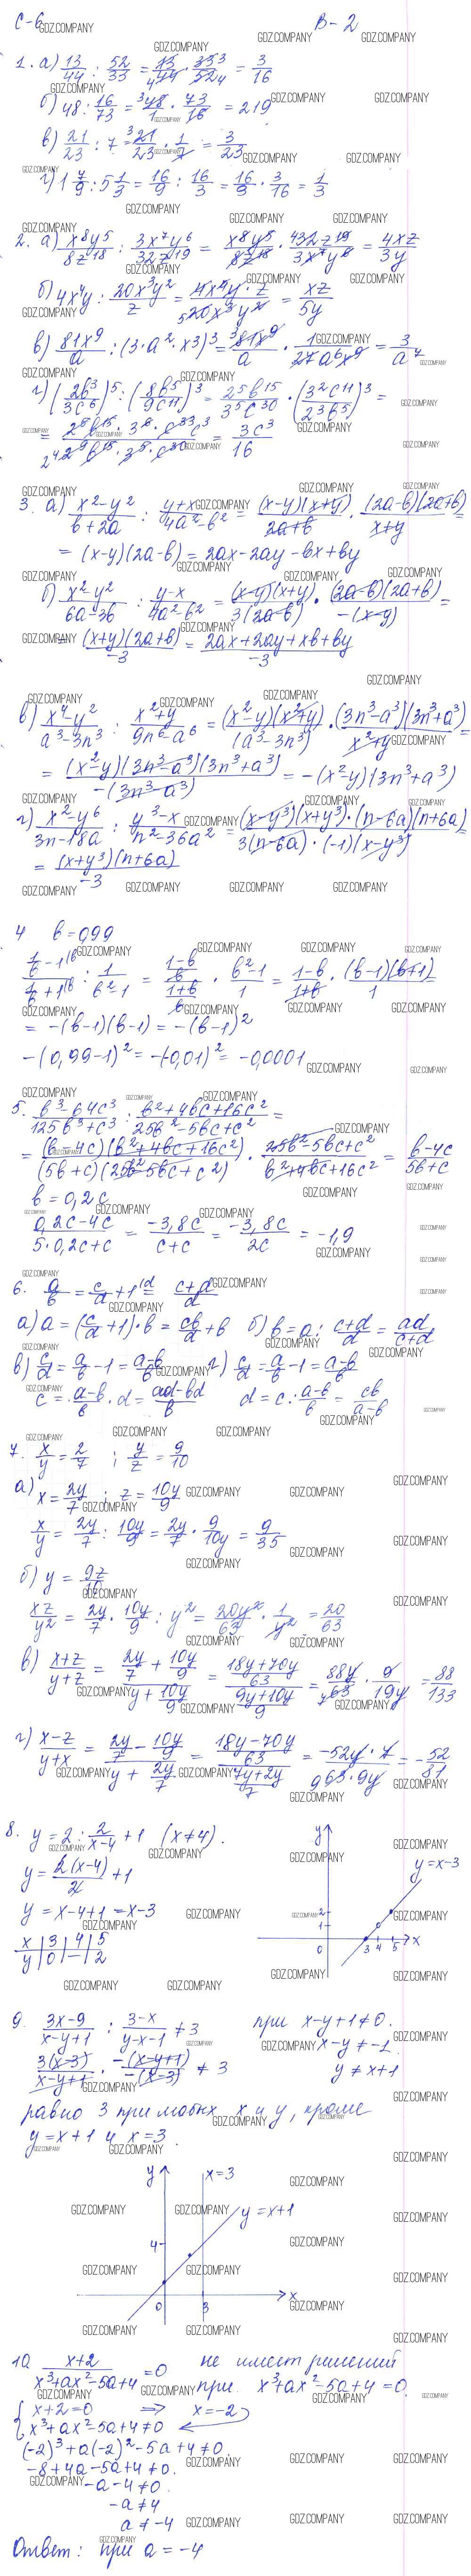 С-6 В-2
1. а) 13/44 : 52/33 = 13/44 · 33/52 = 3/16
б) 48 : 16/73 = 48/1 · 73/16 = 219
в) 21/23 : 7 = 21/23 · 1/7 = 3/23
г) 1 7/9 : 5 1/3 = 16/9 : 16/3 = 16/9 · 3/16 = 1/3
2. а) x^8y^5/8z^18 : 3x^7y^6/32z^19 = x^8y^5/8z^18 · 32z^19/3x^7y^6 = 4xz/3y
б) 4x^4y : 20x^3y^2/z = 4x^4y · z/20x^3y^2 = xz/5y
в) 81x^9/a : (3·a^2·x^3)^3 = 81x^9/a · 1/27a^6x^9 = 3/a^7
г) (2b^3/3c^6)^5 : (8b^5/9c^11)^3 = 2^5b^15/3^5c^30 · (3^2c^11/2^3b^5)^3 =
= 2^5b^15·3^6·c^33/2^9b^15·3^5·c^30 = 3c^3/16
3. а) x^2-y^2/b+2a : y+x/4a^2-b^2 = (x-y)(x+y)/2a+b · (2a-b)(2a+b)/x+y =
= (x-y)(2a-b) = 2ax-2ay-bx+by
б) x^2-y^2/6a-3b : y-x/4a^2-b^2 = (x-y)(x+y)/3(2a-b) · (2a-b)(2a+b)/-(x-y) =
= (x+y)(2a+b)/-3 = 2ax+2ay+xb+by/-3
в) x^4-y^2/a^3-3n^3 : x^2+y/9n^6-a^6 = (x^2-y)(x^2+y)/(a^3-3n^3) · (3n^3-a^3)(3n^3+a^3)/x^2+y =
= (x^2-y)(3n^3-a^3)(3n^3+a^3)/-(3n^3-a^3) = -(x^2-y)(3n^3+a^3)
г) x^2-y^6/3n-18a : y^3-x/n^2-36a^2 = (x-y^3)(x+y^3)·(n-6a)(n+6a)/3(n-6a)·(-1)(x-y^3) =
= (x+y^3)(n+6a)/-3
4 b=0,99
= -(b-1)(b-1) = -(b-1)^2
-(0,99-1)^2 = -(-0,01)^2 = -0,0001
5. b^3-64c^3/125b^3+c^3 : b^2+4bc+16c^2/25b^2-5bc+c^2 =
= (b-4c)(b^2+4bc+16c^2)/(5b+c)(25b^2-5bc+c^2) · 25b^2-5bc+c^2/b^2+4bc+16c^2 = b-4c/5b+c
b=0,2c
0,2c-4c/5·0,2c+c = -3,8c/c+c = -3,8c/2c = -1,9
6. a/b = c/d + 1 = c+d/d
а) a = (c/d + 1)·b = cb/d + b б) b = a : c+d/d = ad/c+d
в) c/d = a/b - 1 = a-b/b г) c/d = a/b - 1 = a-b/b
c = a-b/b · d = ad-bd/b d = c : a-b/b = cb/a-b
7. x/y = 2/7 ; y/z = 9/10
а) x = 2y/7 ; z = 10y/9
x/y = 2y/7 : 10y/9 = 2y/7 · 9/10y = 9/35
б) y = 9z/10
xz/y^2 = 2y/7 · 10y/9 : y^2 = 20y^2/63 · 1/y^2 = 20/63
в) x+z/y+z = 18y+70y/63 / 9y+10y/9 = 88y/63 · 9/19y = 88/133
г) x-z/y+x = 18y-70y/63 / 7y+2y/7 = -52y·7/63·9y = -52/81
8. y = 2 : 2/x-4 + 1 (x≠4).
y = 2(x-4)/2 + 1
y = x-4+1 = x-3
x 3 4 5
y 0 - 2
y=x-3
9. 3x-9/x-y+1 : 3-x/y-x-1 ≠ 3 при x-y+1≠0.
3(x-3)/x-y+1 · -(x-y+1)/-(x-3) ≠ 3 x-y≠-1
y≠x+1
равно 3 при любых x и y, кроме
y=x+1 и x=3.
x=3
y=x+1
10. x+2/x^3+ax^2-5a+4 = 0 не имеет решений
при x^3+ax^2-5a+4=0.
x+2=0 ⇒ x=-2
x^3+ax^2-5a+4≠0
(-2)^3+a(-2)^2-5a+4≠0.
-8+4a-5a+4≠0.
-a-4≠0.
-a≠4
a≠-4
Ответ: при a=-4
GDZ.COMPANY